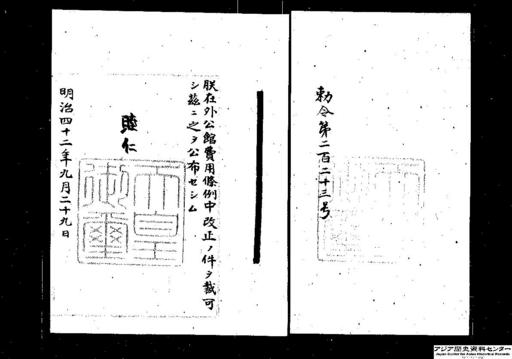 勅令第二百二十三号
朕在外公館費用條例中改正ノ件ヲ裁可
シ茲ニ之ヲ公布セシム
睦仁
天皇御璽
明治四十二年九月二十九日
アジア歴史資料センター
Japan Center for Asian Historical Records